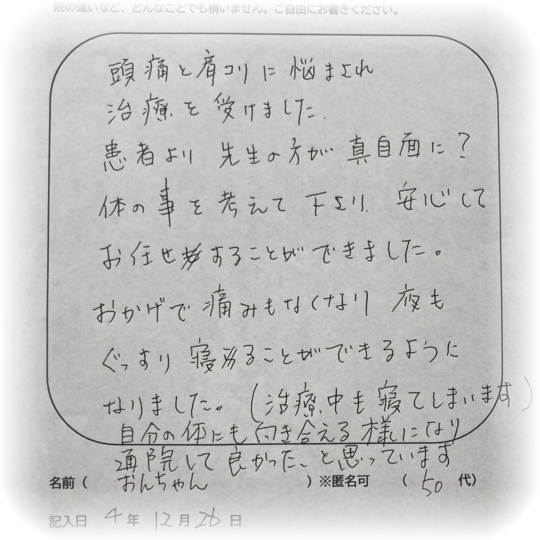 院の違いなど、どんなことでも構いません。ご自由にお書きください。
頭痛と肩コリに悩まされ
治療を受けました。
患者より 先生の方が 真自面に?
体の事を考えて下さり、安心して
お任せすることができました。
おかげで痛みもなくなり 夜も
ぐっすり寝れることができるように
なりました。(治療中も寝てしまいます)
自分の体にも向き合える様になり
通院して良かった、と思っています
名前( おんちゃん )※匿名可 ( 50 代)
記入日 4年 12月 26日